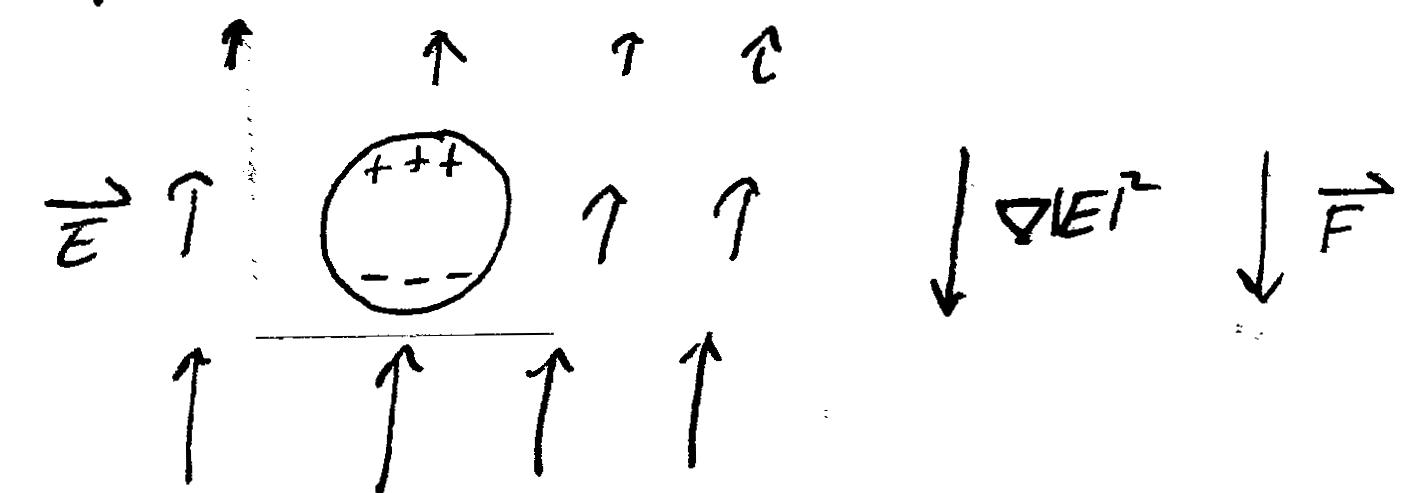 + + +
E⃗ ∇|E|² F⃗
− − −